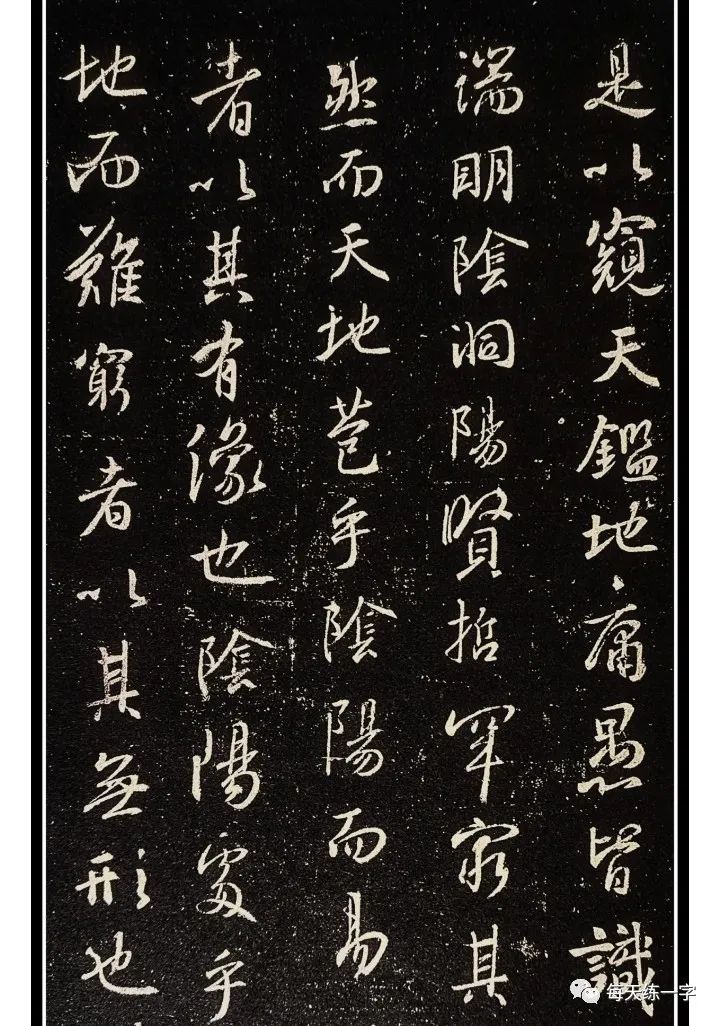 是以窺天鑑地庸愚皆識
端明陰洞陽賢哲罕窮其
然而天地苞乎陰陽而易
者以其有像也陰陽處乎
地而難窮者以其無形也
每天练一字